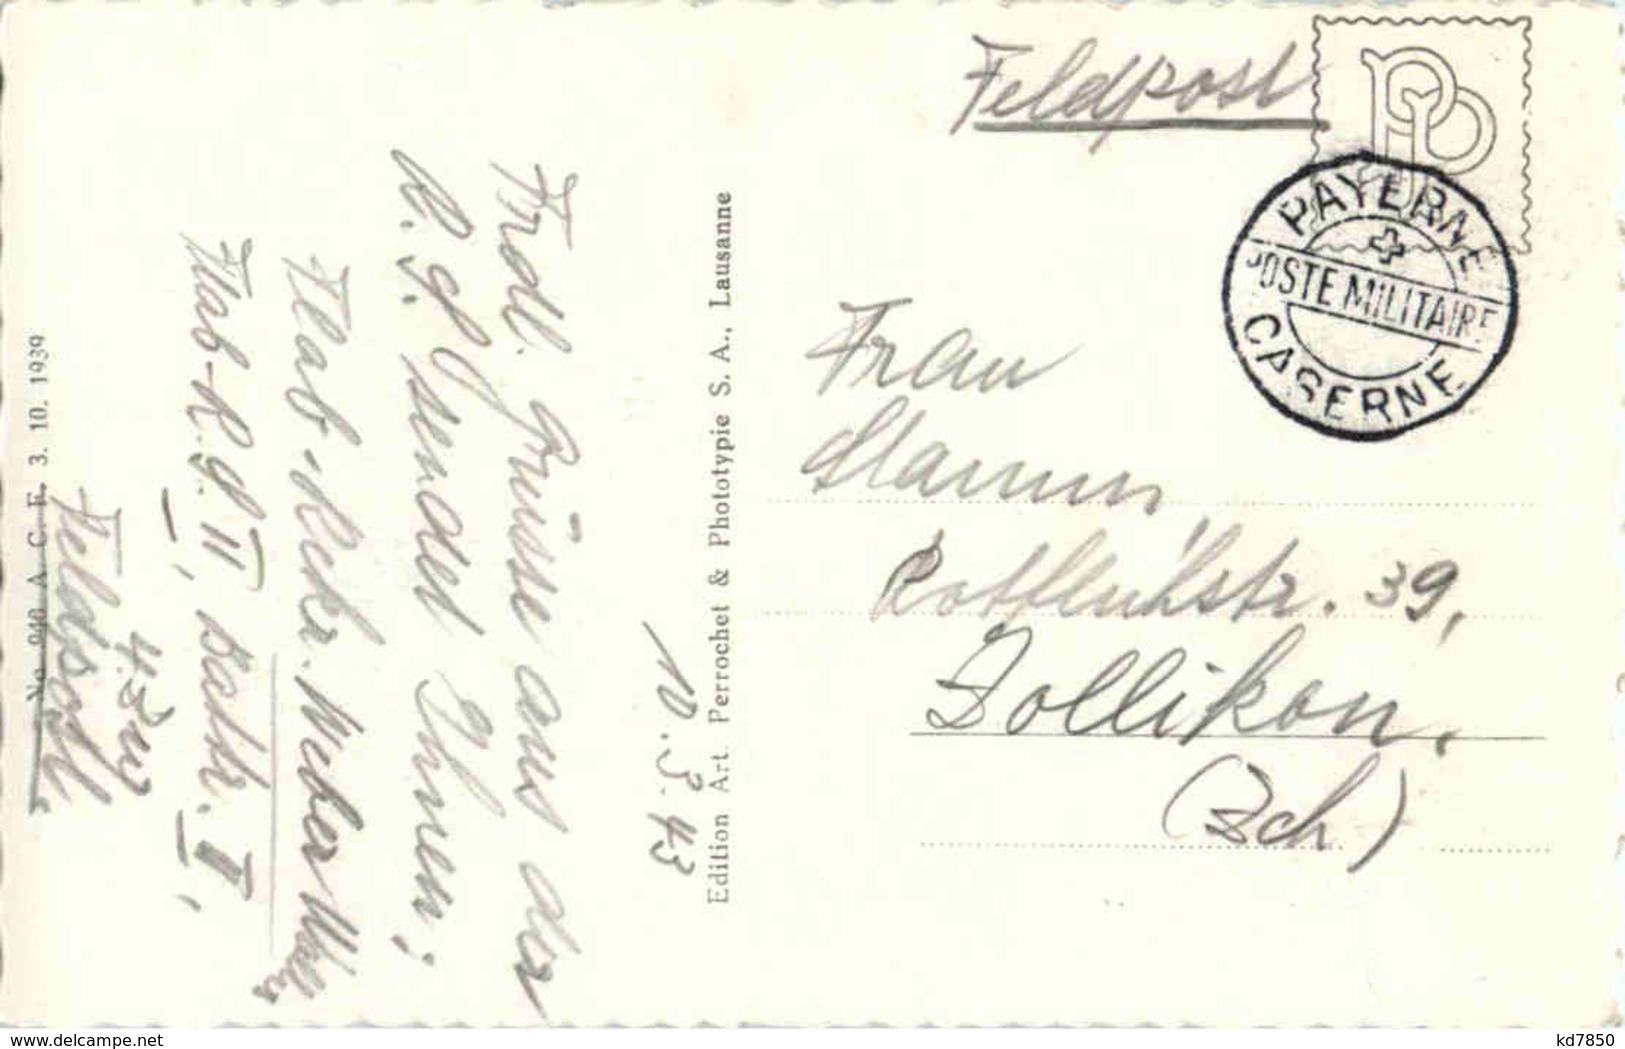 Feldpost
PAYERNE
POSTE MILITAIRE
CASERNE
Frau
Rotfluhstr. 39,
Zollikon.
(Zch)
Edition Art. Perrochet & Phototypie S. A., Lausanne
10.3.43
Frdl. Grüsse aus der
R. S. sendet Ihnen:
Flab. Rekr. Weber
Flab-R.S. II, Battr. II,
4. Zug
Feldpost.
No 940 A C F 3. 10. 1939
delcampe.net
kd7850